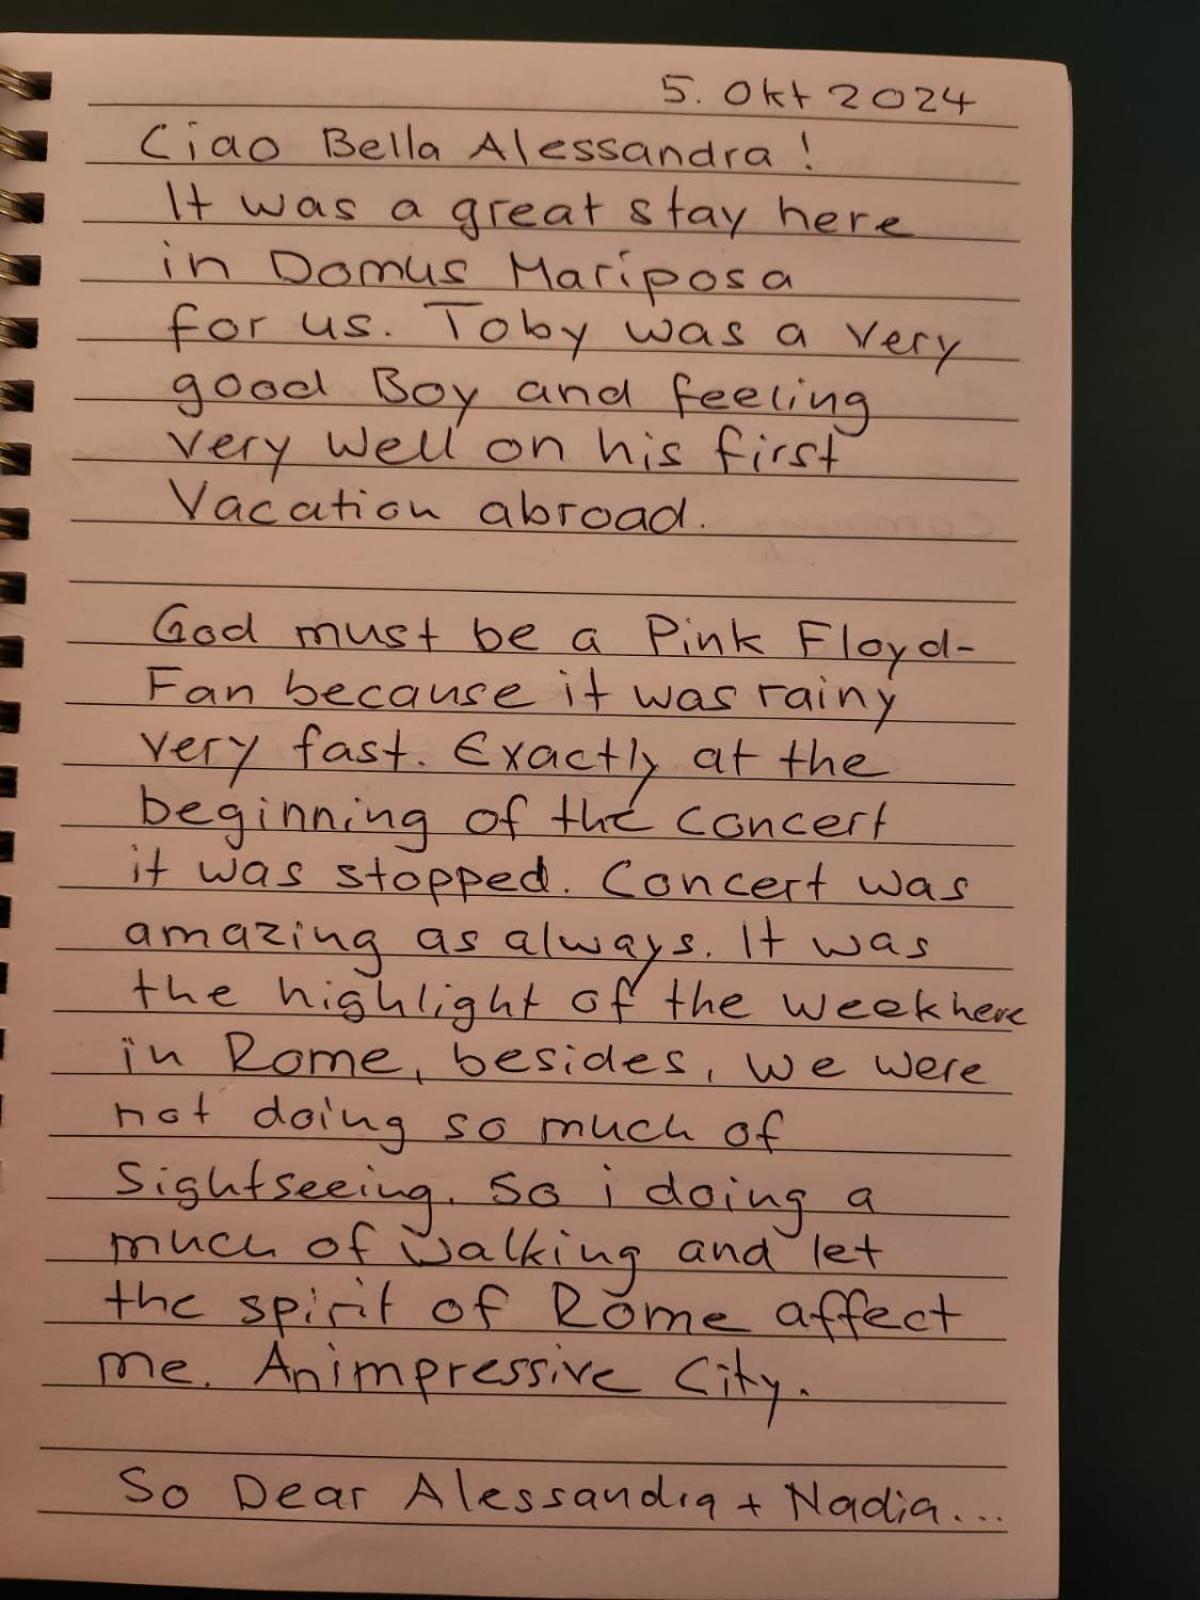 5. Okt 2024
Ciao Bella Alessandra!
It was a great stay here
in Domus Mariposa
for us. Toby was a very
good Boy and feeling
very well on his first
Vacation abroad.
God must be a Pink Floyd-
Fan because it was rainy
very fast. Exactly at the
beginning of the concert
it was stopped. Concert was
amazing as always. It was
the highlight of the week here
in Rome, besides, we were
not doing so much of
Sightseeing. So i doing a
much of walking and let
the spirit of Rome affect
me. An impressive City.
So Dear Alessandra + Nadia...